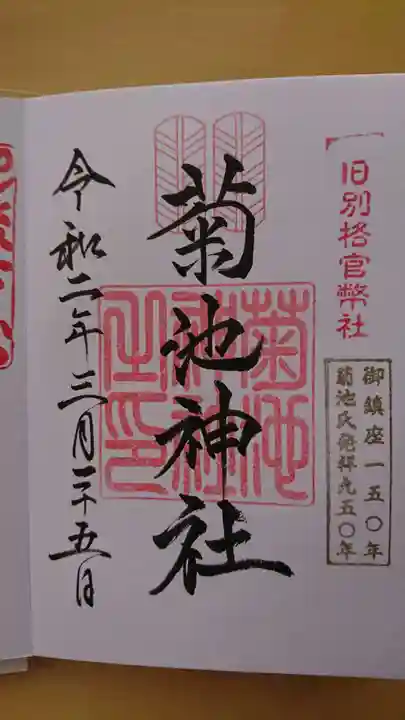 旧別格官幣社
御鎮座一五〇年
菊池氏発祥九五〇年
菊池神社
菊池
神社
之印
令和二年三月二十五日